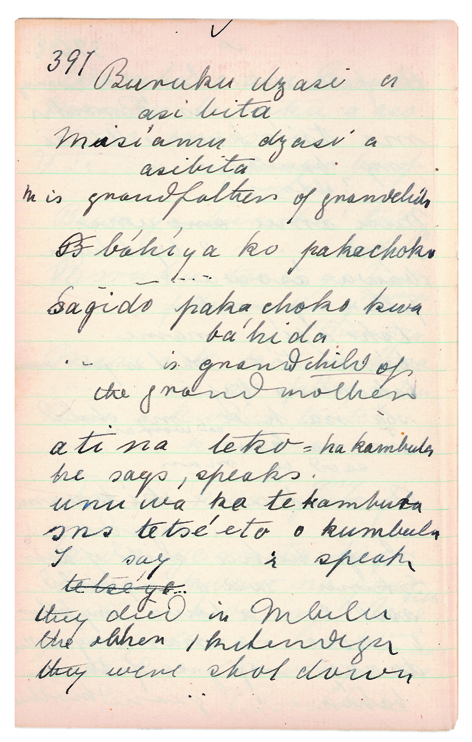 391
Buruku dzasi a
asibita
Misiamu dzasi a
asibita
M is grandfather of grandchild
B báhiya ko pakachoko
Sagido pakachoko kwa
báhida
" is grandchild of
the grandmother
ati na teko = ha kambula
he says, speaks.
unuwa ka te kambuta
sns tetsé eto o kumbula
I say & speak
they died in Mbilu
the other
they were shot down